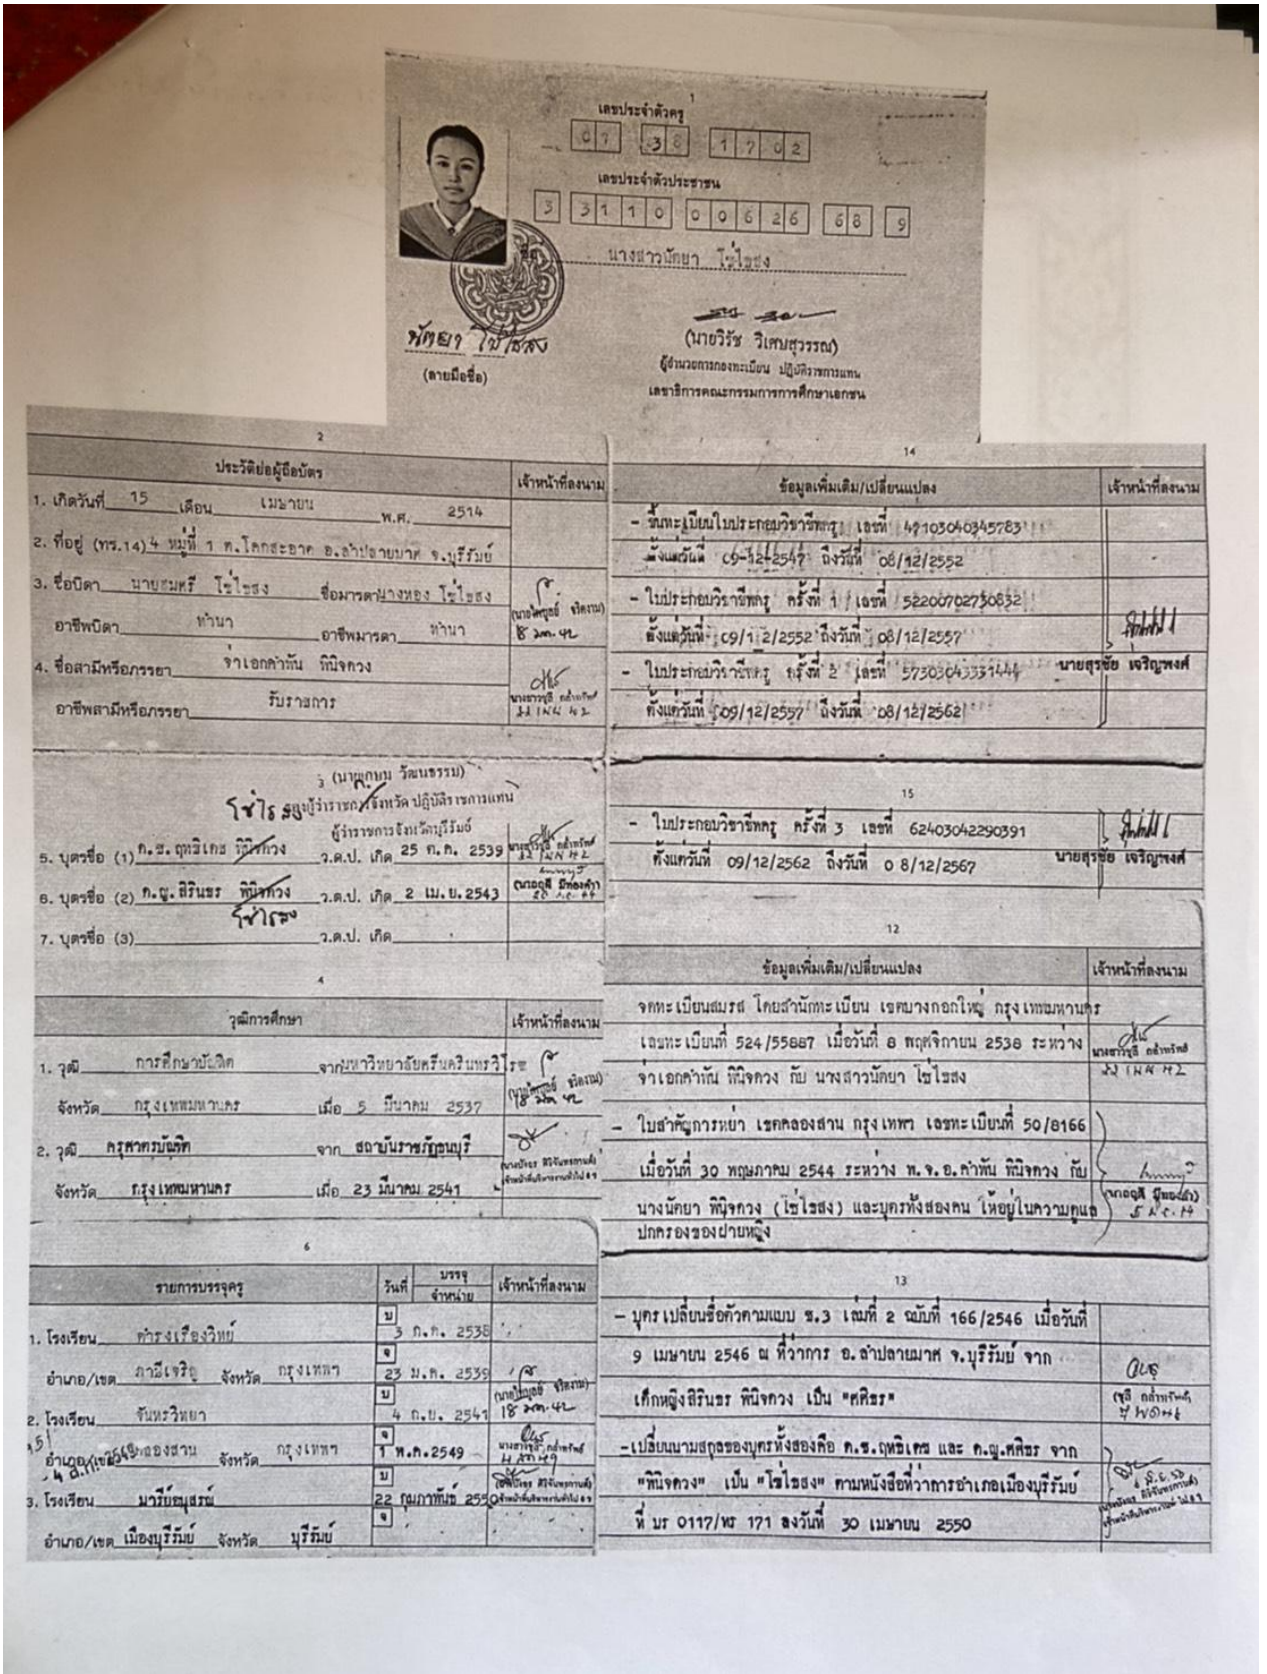 1
เลขประจำตัวครู
07 38 1702
เลขประจำตัวประชาชน
3 3110 00626 68 9
ชื่อ นางสาวนัตยา โชไชสง
นัตยา โชไชสง
(ลายมือชื่อ)
(นายวิรัช วิเศษสุวรรณ)
ผู้อำนวยการกองทะเบียน ปฏิบัติราชการแทน
เลขาธิการคณะกรรมการการศึกษาเอกชน
2
ประวัติย่อผู้ถือบัตร เจ้าหน้าที่ลงนาม
1. เกิดวันที่ 15 เดือน เมษายน พ.ศ. 2514
2. ที่อยู่ (ทร.14) 4 หมู่ที่ 1 ต.โคกสะอาด อ.ลำปลายมาศ จ.บุรีรัมย์
3. ชื่อบิดา นายสมศรี โชไชสง ชื่อมารดา นางทอง โชไชสง
อาชีพบิดา ทำนา อาชีพมารดา ทำนา
18 มค. 42
4. ชื่อสามีหรือภรรยา จ่าเอกคำทัน พินิจดวง
อาชีพสามีหรือภรรยา รับราชการ
3 (นายเกษม วัฒนธรรม)
โชไชสง รองผู้ว่าราชการจังหวัด ปฏิบัติราชการแทน
ผู้ว่าราชการจังหวัดบุรีรัมย์
5. บุตรชื่อ (1) ด.ช.ฤทธิเดช พินิจดวง ว.ด.ป. เกิด 25 ก.ค. 2539
6. บุตรชื่อ (2) ด.ญ.สิรินธร พินิจดวง ว.ด.ป. เกิด 2 เม.ย.2543
โชไชสง
7. บุตรชื่อ (3) ว.ด.ป. เกิด
4
วุฒิการศึกษา เจ้าหน้าที่ลงนาม
1. วุฒิ การศึกษาบัณฑิต จาก มหาวิทยาลัยศรีนครินทรวิโรฒ
จังหวัด กรุงเทพมหานคร เมื่อ 5 มีนาคม 2537
18 มค. 42
2. วุฒิ ครุศาสตรบัณฑิต จาก สถาบันราชภัฏธนบุรี
จังหวัด กรุงเทพมหานคร เมื่อ 23 มีนาคม 2541
6
รายการบรรจุครู วันที่ บรรจุ จำหน่าย เจ้าหน้าที่ลงนาม
1. โรงเรียน ดำรงเรืองวิทย์ บ 3 ก.ค. 2538
อำเภอ/เขต ภาษีเจริญ จังหวัด กรุงเทพฯ จ 23 ม.ค. 2539
2. โรงเรียน จันทรวิทยา บ 4 ก.ย. 2541 18 มค. 42
อำเภอ/เขต คลองสาน จังหวัด กรุงเทพฯ จ 1 พ.ค.2549
3. โรงเรียน มารีย์อนุสรณ์ บ 22 กุมภาพันธ์ 2550
อำเภอ/เขต เมืองบุรีรัมย์ จังหวัด บุรีรัมย์ จ
14
ข้อมูลเพิ่มเติม/เปลี่ยนแปลง เจ้าหน้าที่ลงนาม
- ขึ้นทะเบียนใบประกอบวิชาชีพครู เลขที่ 47103040345783
ตั้งแต่วันที่ 09-12-2547 ถึงวันที่ 08/12/2552
- ใบประกอบวิชาชีพครู ครั้งที่ 1 เลขที่ 52200702730832
ตั้งแต่วันที่ 09/12/2552 ถึงวันที่ 08/12/2557
- ใบประกอบวิชาชีพครู ครั้งที่ 2 เลขที่ 57303043331444
นายสุรชัย เจริญพงศ์
ตั้งแต่วันที่ 09/12/2557 ถึงวันที่ 08/12/2562
15
- ใบประกอบวิชาชีพครู ครั้งที่ 3 เลขที่ 62403042290391
ตั้งแต่วันที่ 09/12/2562 ถึงวันที่ 0 8/12/2567
นายสุรชัย เจริญพงศ์
12
ข้อมูลเพิ่มเติม/เปลี่ยนแปลง เจ้าหน้าที่ลงนาม
จดทะเบียนสมรส โดยสำนักทะเบียน เขตบางกอกใหญ่ กรุงเทพมหานคร
เลขทะเบียนที่ 524/55887 เมื่อวันที่ 8 พฤศจิกายน 2538 ระหว่าง
จ่าเอกคำทัน พินิจดวง กับ นางสาวนัตยา โชไชสง
- ใบสำคัญการหย่า เขตคลองสาน กรุงเทพฯ เลขทะเบียนที่ 50/8166
เมื่อวันที่ 30 พฤษภาคม 2544 ระหว่าง พ.จ.อ.คำทัน พินิจดวง กับ
นางนัตยา พินิจดวง (โชไชสง) และบุตรทั้งสองคน ให้อยู่ในความดูแล
ปกครองของฝ่ายหญิง
13
- บุตรเปลี่ยนชื่อตัวตามแบบ ช.3 เล่มที่ 2 ฉบับที่ 166/2546 เมื่อวันที่
9 เมษายน 2546 ณ ที่ว่าการ อ.ลำปลายมาศ จ.บุรีรัมย์ จาก
เด็กหญิงสิรินธร พินิจดวง เป็น "ศศิธร"
- เปลี่ยนนามสกุลของบุตรทั้งสองคือ ด.ช.ฤทธิเดช และ ด.ญ.ศศิธร จาก
"พินิจดวง" เป็น "โชไชสง" ตามหนังสือที่ว่าการอำเภอเมืองบุรีรัมย์
ที่ บร 0117/ทร 171 ลงวันที่ 30 เมษายน 2550